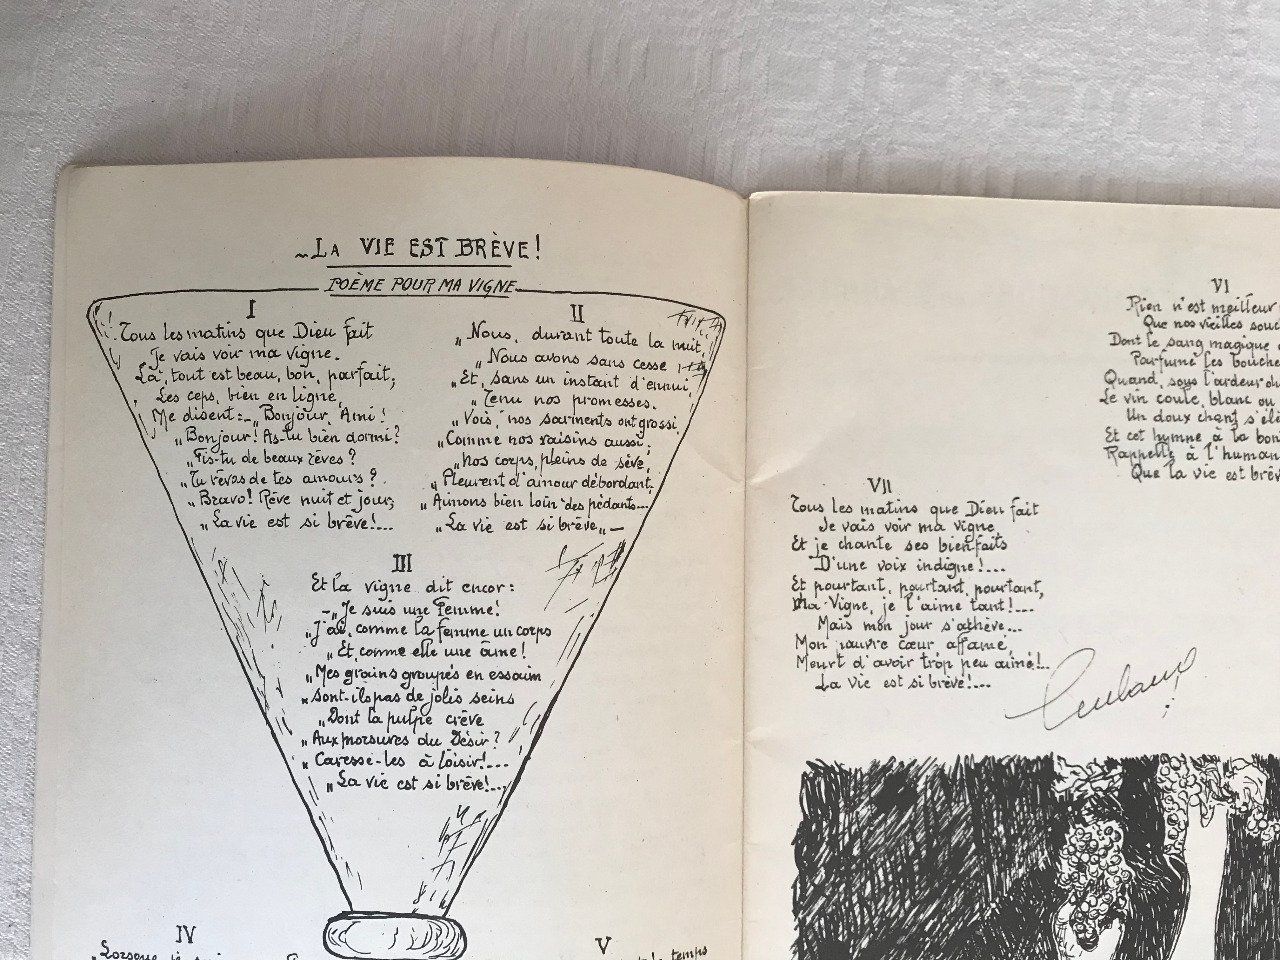 LA VIE EST BRÈVE!
POÈME POUR MA VIGNE
I
Tous les matins que Dieu fait
Je vais voir ma vigne.
Là, tout est beau, bon, parfait,
Les ceps, bien en ligne,
Me disent:_„Bonjour, Ami!
„Bonjour! As-tu bien dormi?
„Fis-tu de beaux rêves?
„Tu rêvas de tes amours?
„Bravo! Rêve nuit et jour,
„La vie est si brève!...
II
„Nous, durant toute la nuit,
„Nous avons sans cesse
„Et, sans un instant d'ennui,
„Tenu nos promesses.
„Vois, nos sarments ont grossi
„Comme nos raisins aussi;
„Nos corps, pleins de sève,
„Pleurent d'amour débordant,
„Aimons bien loin des pédants...
„La vie est si brève„_
III
Et la vigne dit encor:
_„Je suis une Femme!
„J'ai, comme la femme un corps
„Et comme elle une âme!
„Mes grains groupés en essaim
„Sont-ils pas de jolis seins
„Dont la pulpe crève
„Aux morsures du Désir?
„Caresse-les à loisir!...
„La vie est si brève!...
IV
„Lorsque
V
temps
VI
Rien n'est meilleur
Que nos vieilles
Dont le sang magique
Parfume les
Quand, sous l'ardeur du
Le vin coule, blanc ou
Un doux chant
Et cet hymne à la
Rappelle à
Que la vie est
VII
Tous les matins que Dieu fait
Je vais voir ma vigne
Et je chante ses bienfaits
D'une voix indigne!...
Et pourtant, pourtant, pourtant,
Ma Vigne, je l'aime tant!...
Mais mon jour s'achève...
Mon pauvre cœur affamé,
Meurt d'avoir trop peu aimé!..
La vie est si brève!...